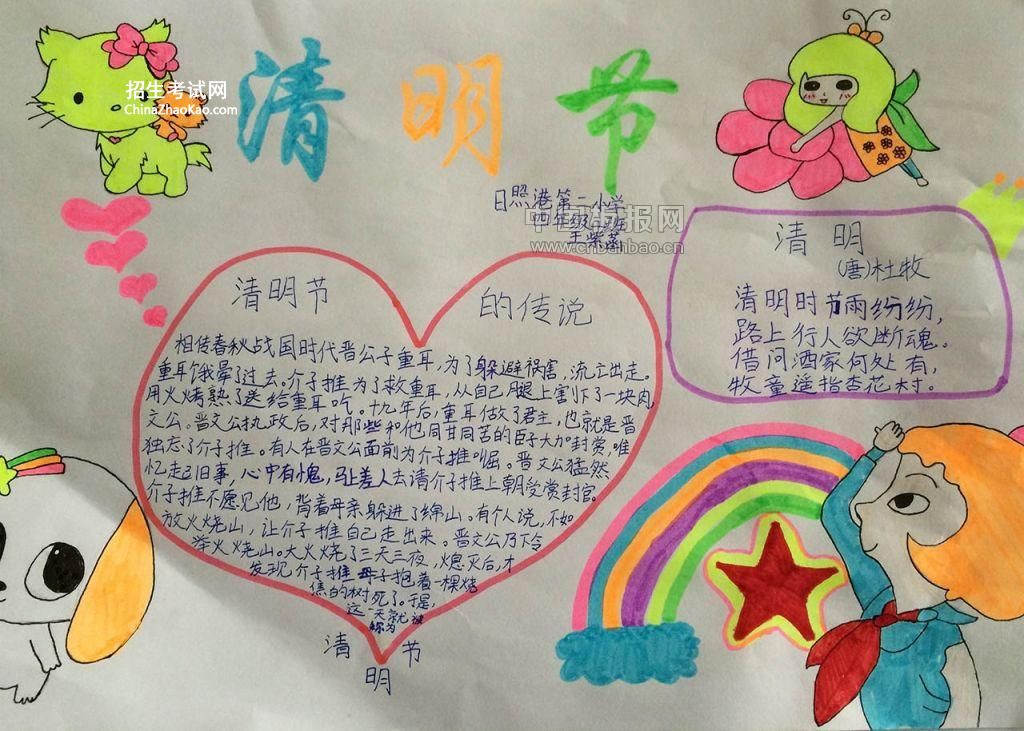 招生考试网
ChinaZhaoKao.com
清明节
日照港第二小学
四年级
中国板报网
www.cnbanbao.cn
清明
(唐)杜牧
清明时节雨纷纷,
路上行人欲断魂。
借问酒家何处有,
牧童遥指杏花村。
清明节 的传说
相传春秋战国时代晋公子重耳,为了躲避祸害,流亡出走。
重耳饿晕了过去。介子推为了救重耳,从自己腿上割下了一块肉,
用火烤熟了送给重耳吃。十九年后,重耳做了君主,也就是晋
文公。晋文公执政后,对那些和他同甘同苦的臣子大加封赏,唯
独忘了介子推。有人在晋文公面前为介子推叫屈。晋文公猛然
忆起旧事,心中有愧,马上差人去请介子推上朝受赏封官。
介子推不愿见他,背着母亲躲进了绵山。有个人说,不如
放火烧山,让介子推自己走出来。晋文公乃下令
举火烧山。大火烧了三天三夜,熄灭后,才
发现介子推母子抱着一棵烧
焦的树死了。于是,
这一天就被
称为
清明节